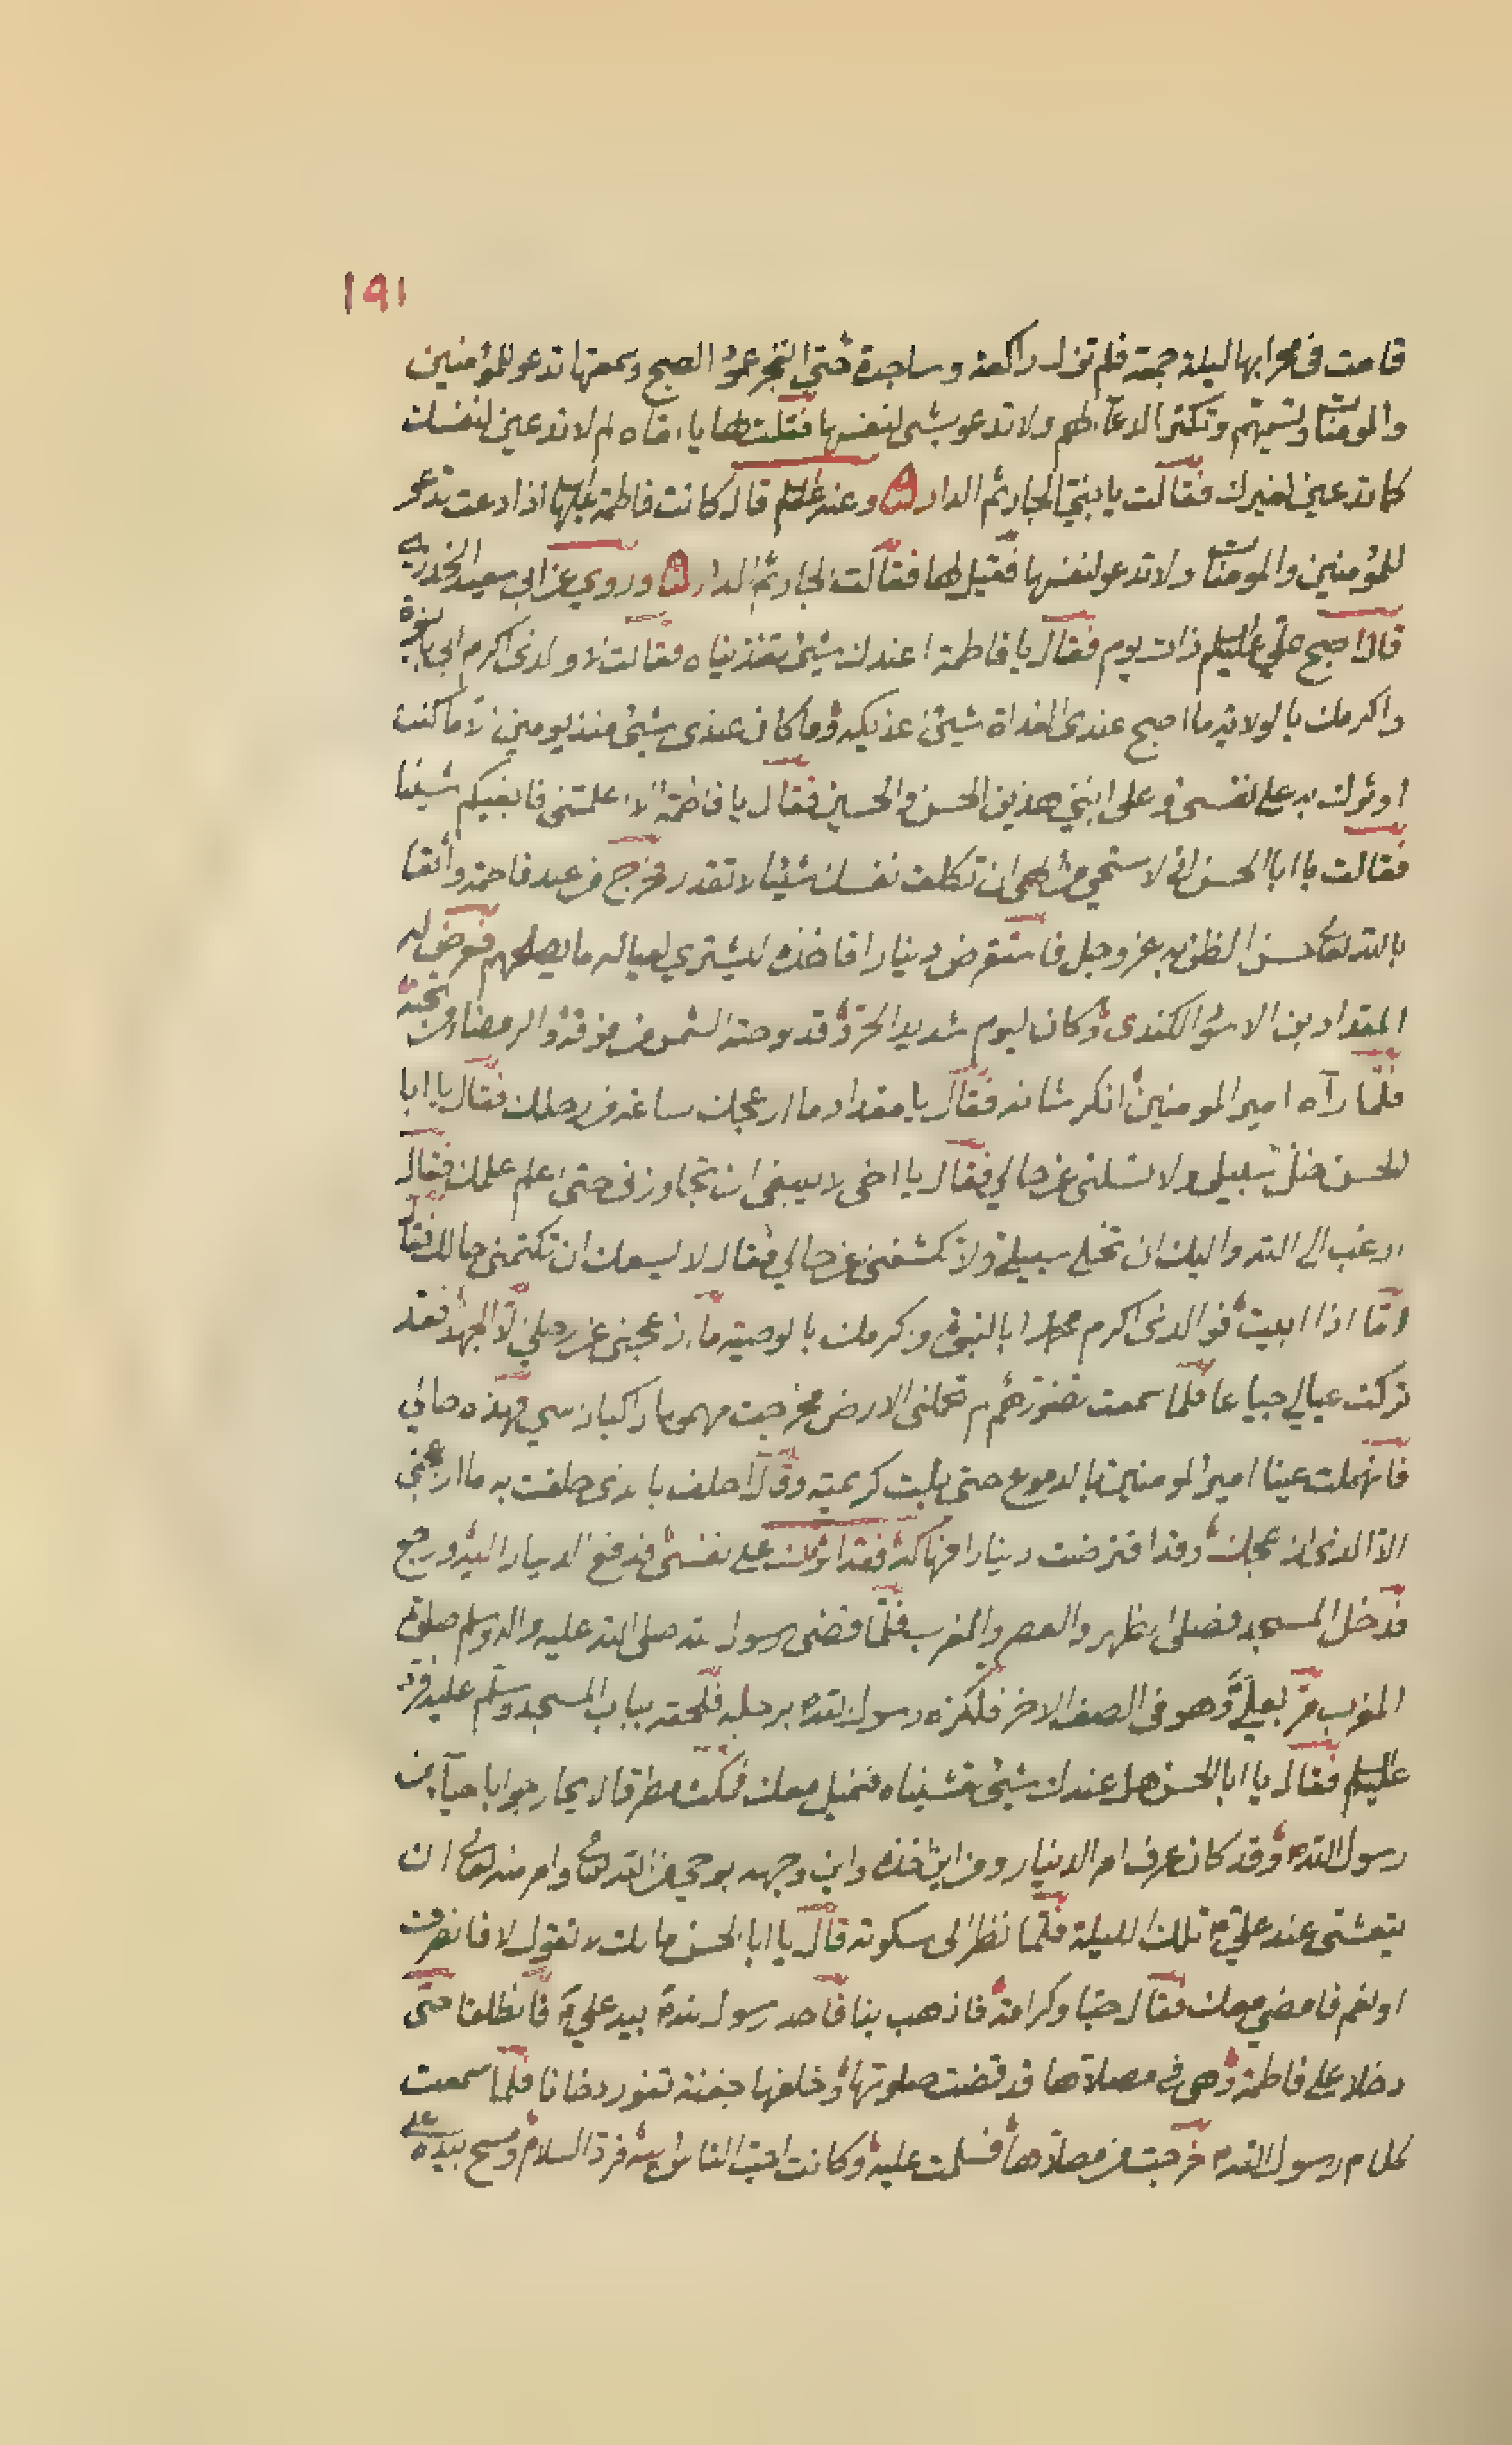 ١٩١
قامت فی محرابها لیلة جمعة فلم تزل راکعة وساجدة حتی انفجر عمود الصبح وسمعتها تدعو للمؤمنین
والمومنات وتسمیهم وتکثر الدعآء لهم ولا تدعو بشی لنفسها فقلت لها یا اماه لم لا تدعین لنفسک
کما تدعین لغیرک فقالت یا بنی الجار ثم الدار وعنه علیه السلم قال کانت فاطمة علیها اذا دعت تدعو
للمؤمنین والمومنات ولا تدعو لنفسها فقیل لها فقالت الجار ثم الدار وروی عن ابی سعید الخدری
قال اصبح علی علیه السلم ذات یوم فقال یا فاطمة اعندک شیئ تغذیناه فقالت لا والذی اکرم ابی بالنبوة
واکرمک بالولایة ما اصبح عندی الغداة شیئ وما کان عندی شیئ منذ یومین الا ما کنت
اوثرک به علی نفسی وعلی ابنی هذین الحسن والحسین فقال یا فاطمة الا اعلمتنی فابغیکم شیئا
فقالت یا ابا الحسن انی لاستحیی من الهی ان تکلف نفسک شیئا لا تقدر فخرج من عند فاطمة واثقا
بالله تعالی حسن الظن به عز وجل فاستقرض دینارا فاخذه لیشتری لعیاله ما یصلحهم فعرض له
المقداد بن الاسود الکندی وکان لیوم شدید الحر وقد لوحته الشمس من فوقه والرمضاء من تحته
فلما رآه امیر المومنین انکر شانه فقال یا مقداد ما ازعجک ساعة من رحلک فقال یا ابا
الحسن خل سبیلی ولا تسلنی عن حالی فقال یا اخی لا ینبغی ان تجاوزنی حتی اعلم علمک فقال
ارغب الی الله والیک ان تخلی سبیلی ولا تکشفنی عن حالی فقال لا یسعک ان تکتمنی حالک فقال
اما اذا ابیت فو الذی اکرم محمدا بالنبوة وکرمک بالوصیة ما ازعجنی عن رحلی الا الجهد فقد
ترکت عیالی جیاعا فلما سمعت تضورهم لم تحملنی الارض فخرجت مهموما راکبا راسی فهذه حالی
فانهملت عینا امیر المومنین بالدموع حتی بلت کریمته وقال احلف بالذی حلفت به ما ازعجنی
الا الذی ازعجک وقد اقترضت دینارا فهاکه فقد اثرتک علی نفسی فدفع الدینار الیه ورجع
فدخل المسجد فصلی الظهر والعصر والمغرب فلما قضی رسول الله صلی الله علیه واله وسلم صلوة
المغرب مر بعلی وهو فی الصف الاخر فلکزه رسول الله برجله فلحقه بباب المسجد وسلم علیه فرد
علیه السلم فقال یا ابا الحسن هل عندک شیئ تعشیناه فنمیل معک فمکث مطرقا لا یحار جوابا حیآء من
رسول الله وقد کان عرف امر الدینار ومن این اخذه واین وجهه بوحی من الله تعالی وامر منه تعالی ان
یتعشی عند علی تلک اللیلة فلما نظر الی سکوته قال یا ابا الحسن مالک لا تقول لا فانصرف
او نعم فامضی معک فقال حبا وکرامة فاذهب بنا فاخذ رسول الله بید علی فانطلقا حتی
دخلا علی فاطمة وهی فی مصلاها قد قضت صلوتها وخلفها جفنة تفور دخانا فلما سمعت
کلام رسول الله خرجت من مصلاها فسلمت علیه وکانت احب الناس الیه فرد السلام ومسح بیده علی